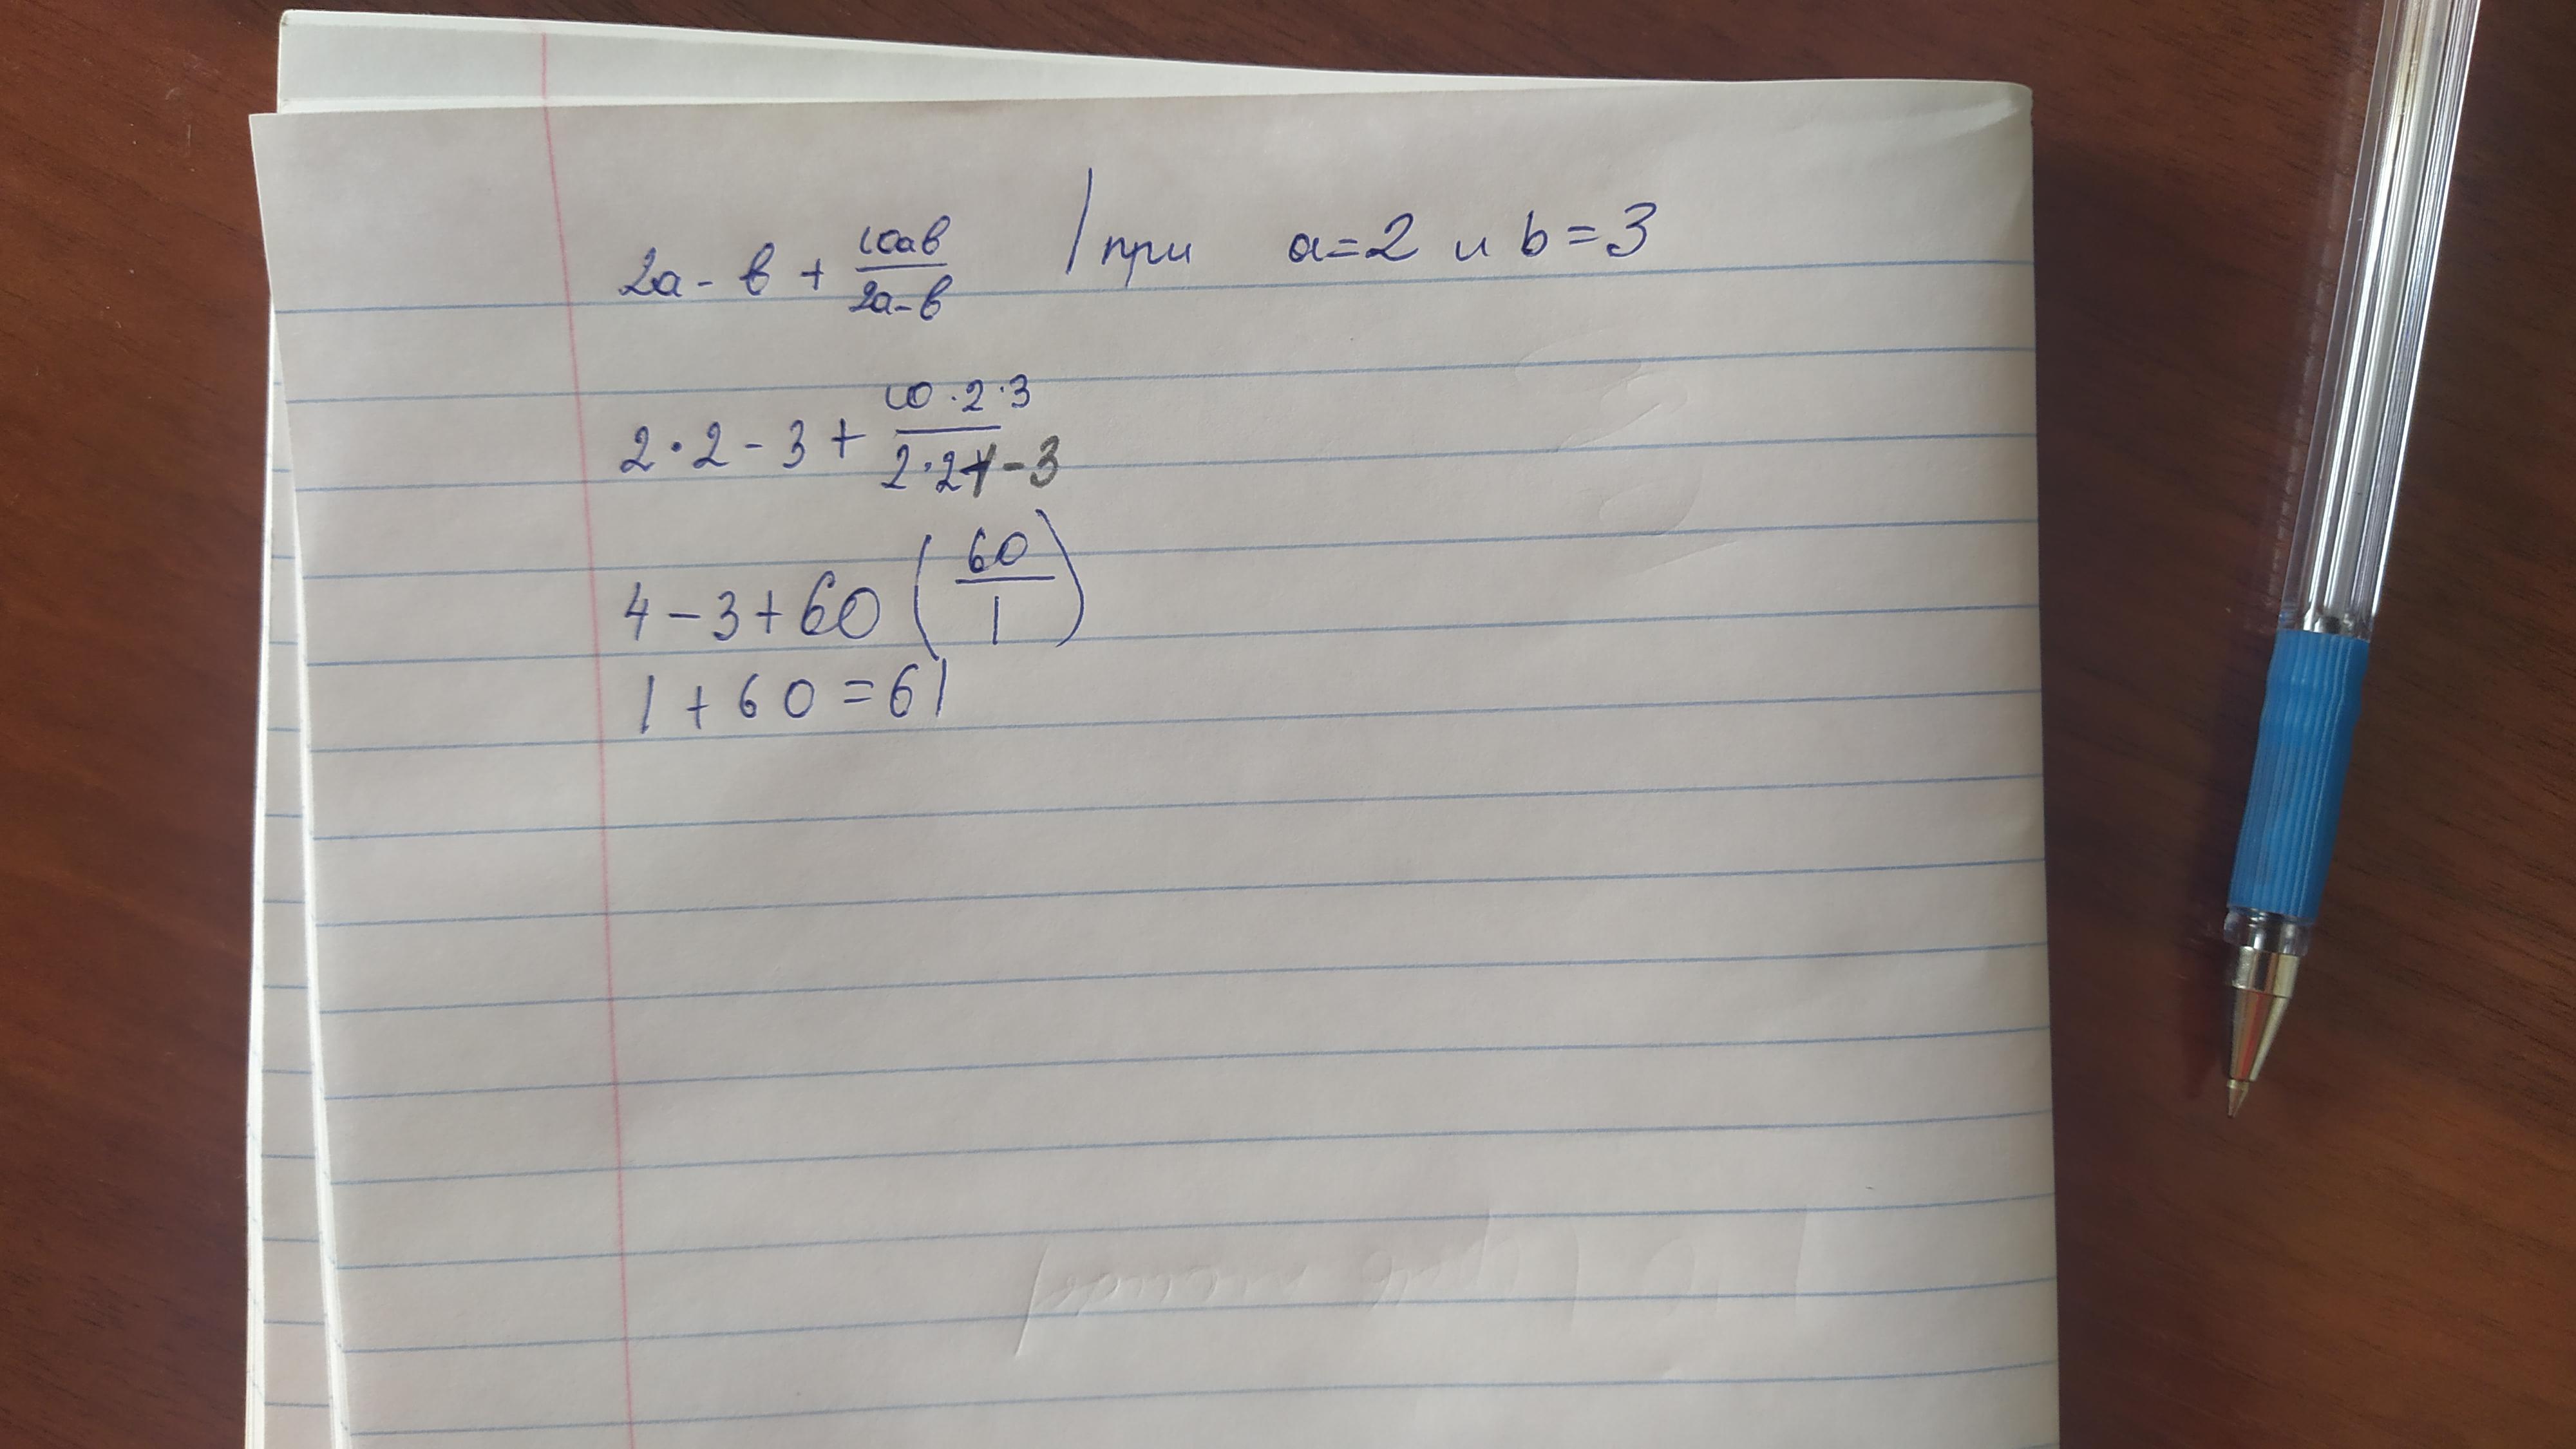 2a - b + 10ab/2a-b / при a=2 и b=3
2·2-3+ 10·2·3/2·2-3
4-3+60 (60/1)
1+60=61